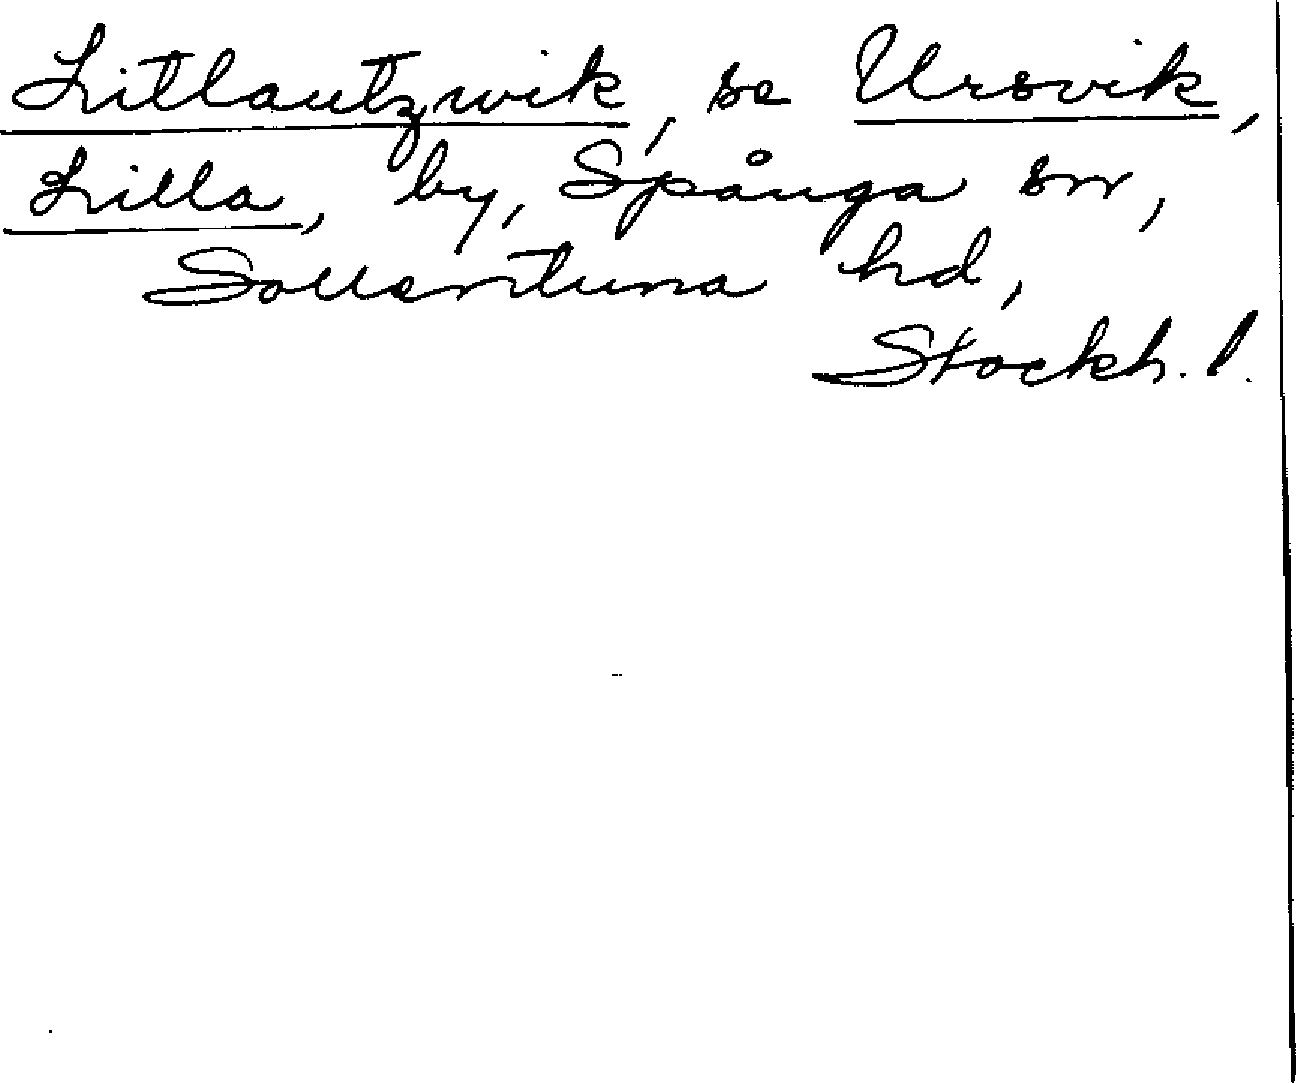 Litlautzwik, se Ursvik,
Lilla, by, Spånga sn,
Sollentuna hd,
Stockh. l.